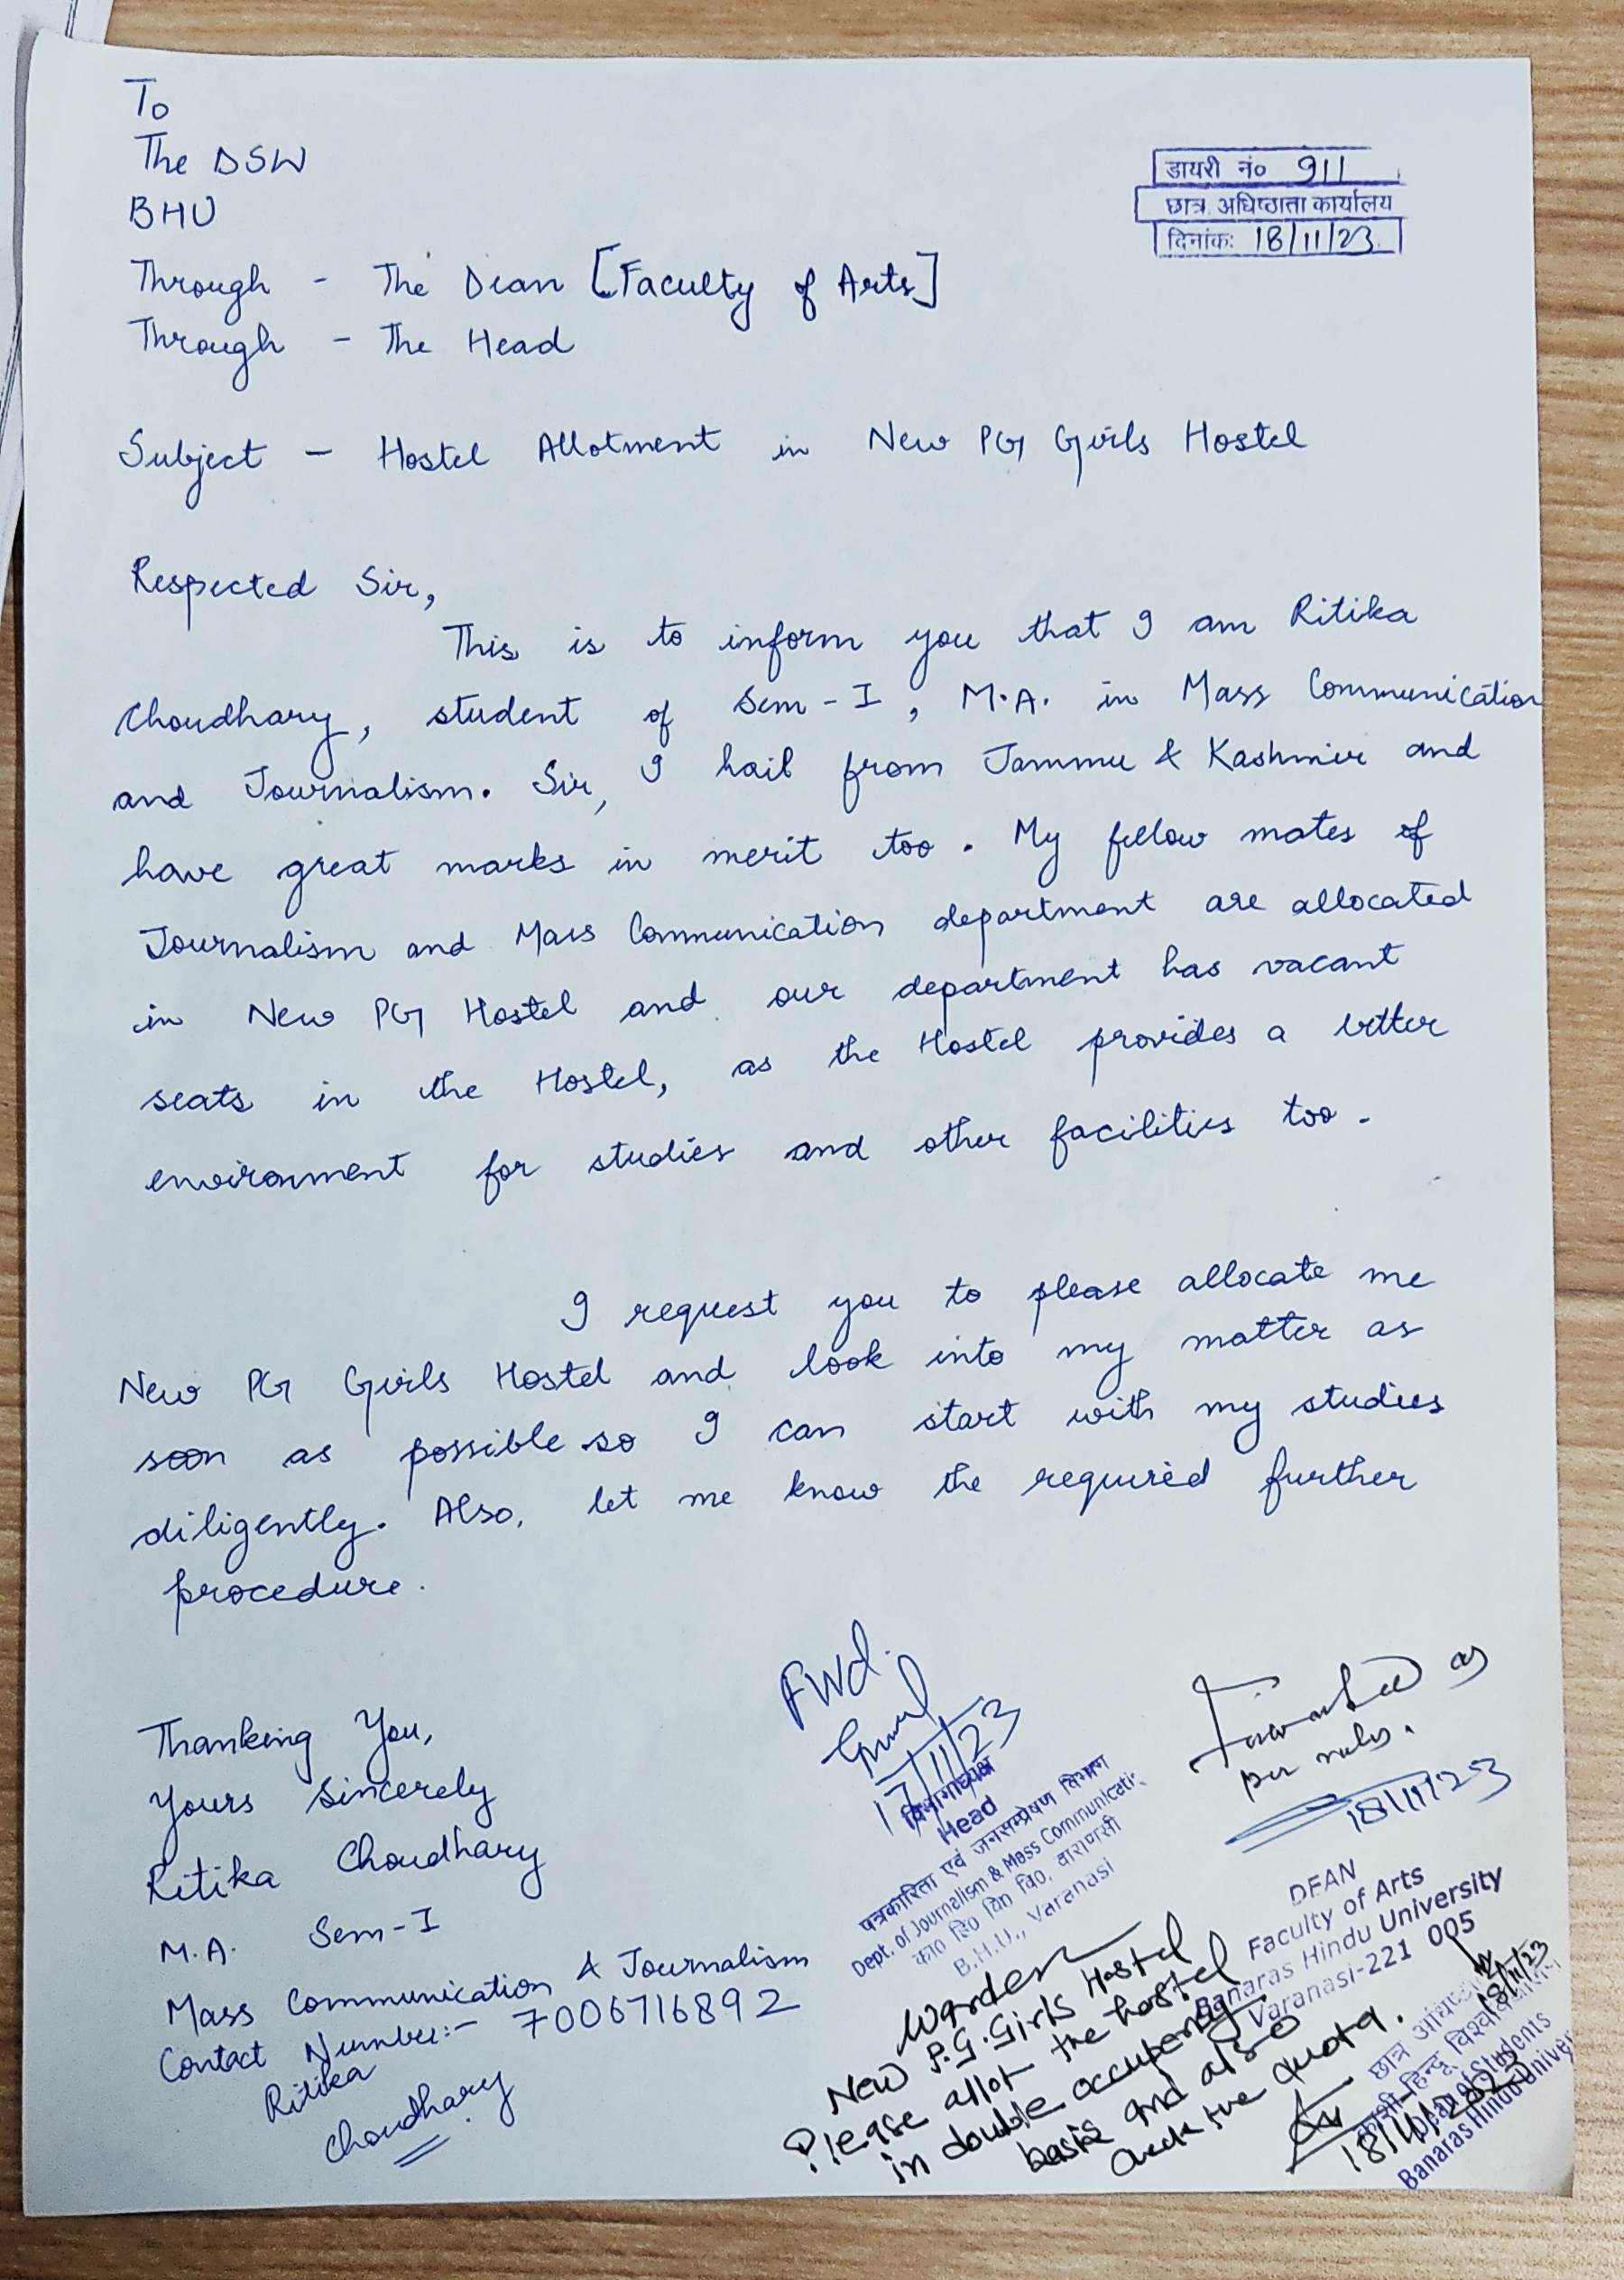 To
The DSW
BHU
डायरी नं० 911
छात्र अधिष्ठाता कार्यालय
दिनांकः 18/11/23
Through - The Dean [Faculty of Arts]
Through - The Head
Subject - Hostel Allotment in New PG Girls Hostel
Respected Sir,
This is to inform you that I am Ritika
Choudhary, student of Sem-I, M.A. in Mass Communication
and Journalism. Sir, I hail from Jammu & Kashmir and
have great marks in merit too. My fellow mates of
Journalism and Mass Communication department are allocated
in New PG Hostel and our department has vacant
seats in the Hostel, as the Hostel provides a better
environment for studies and other facilities too.
I request you to please allocate me
New PG Girls Hostel and look into my matter as
soon as possible so I can start with my studies
diligently. Also, let me know the required further
procedure.
Thanking You,
Yours Sincerely
Ritika Choudhary
M.A. Sem-I
Mass Communication & Journalism
Contact Number:- 7006716892
Ritika
Choudhary
FWd.
17/11/23
विभागाध्यक्ष
Head
पत्रकारिता एवं जनसम्प्रेषण विभाग
Dept. of Journalism & Mass Communicati
का० हि० वि० वि०, वाराणसी
B.H.U., Varanasi
Forwarded as
per rules.
18/11/23
DEAN
Faculty of Arts
Banaras Hindu University
Varanasi-221 005
Warden
New P.G. Girls Hostel
Please allot the hostel
in double occupency
basis and also
check the quota.
18/11/23
18/11/2023
छात्र
काशी हिन्दू
Dean of Students
Banaras Hindu Univer